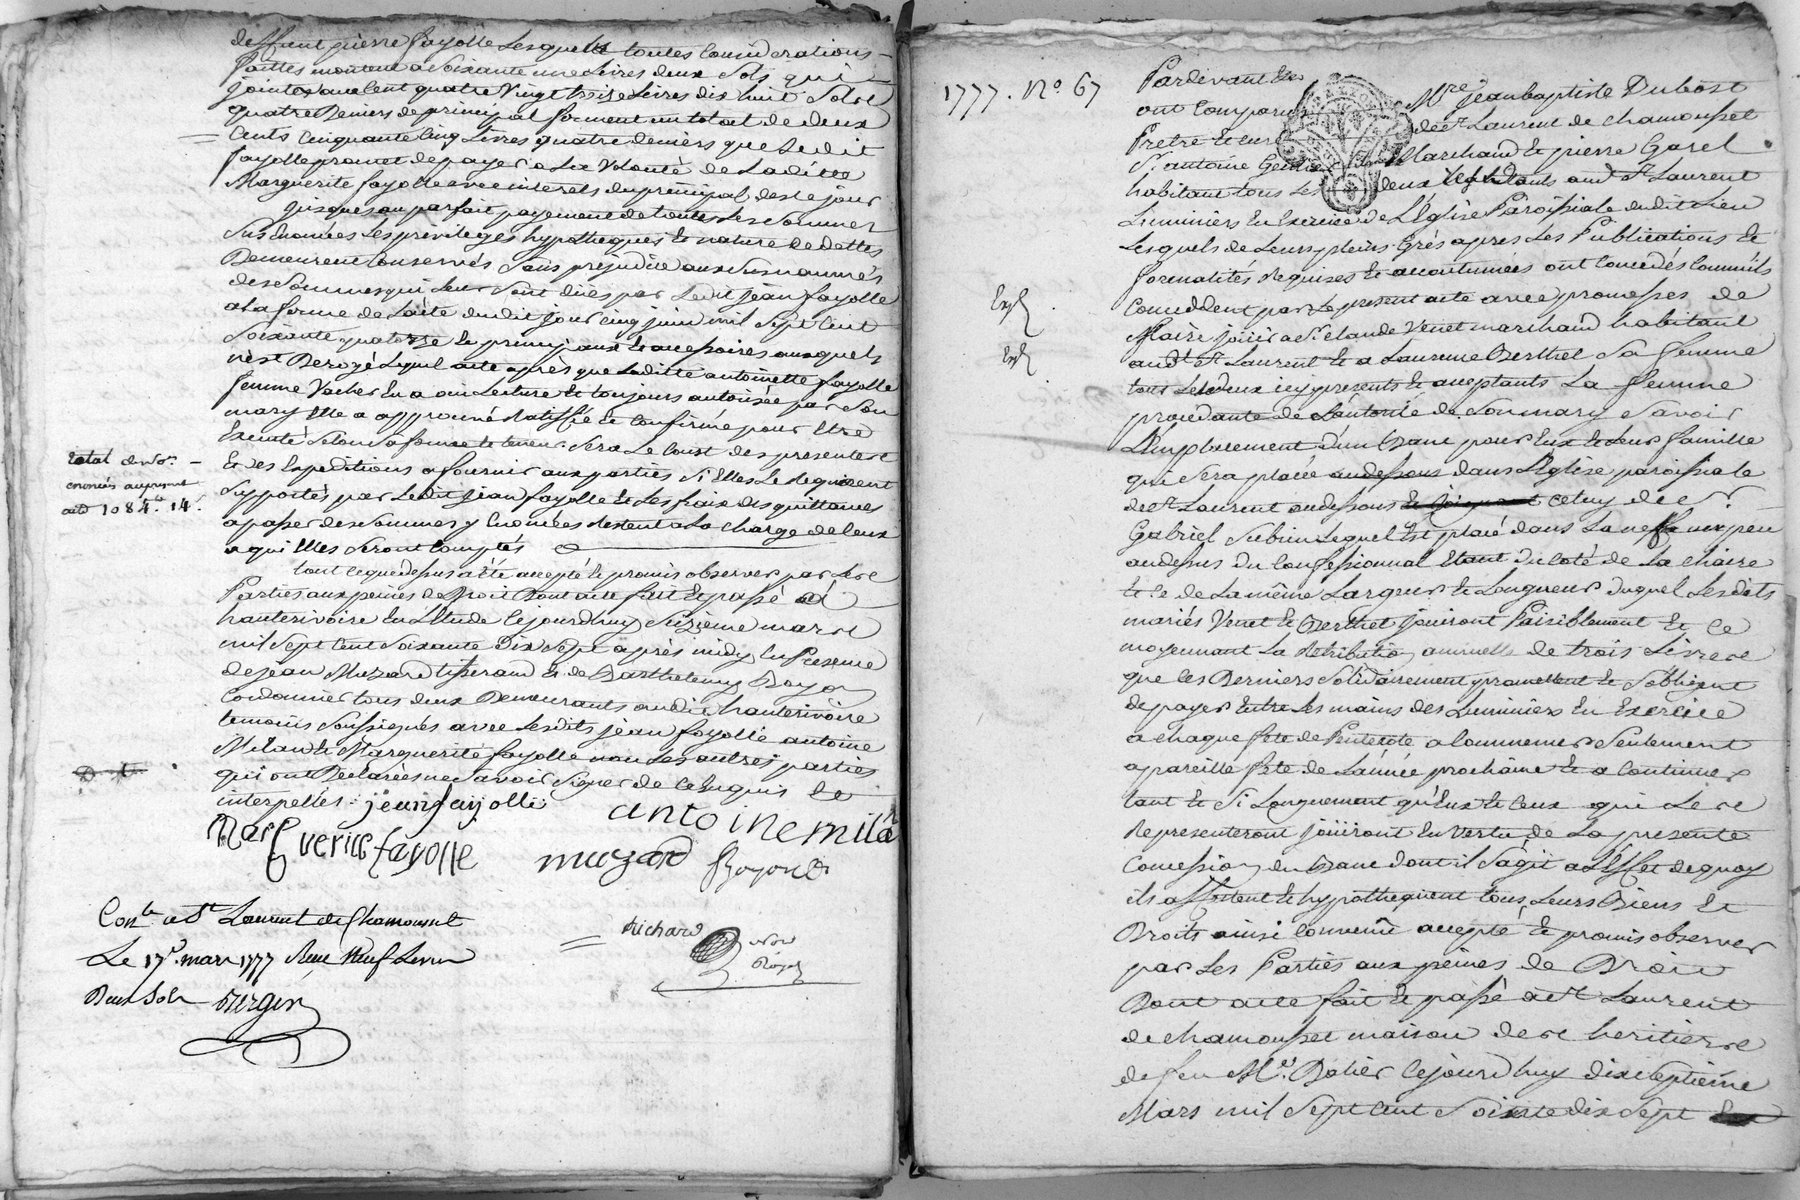 deffunt pierre fayolle lesquels toutes Considerations
faittes montent a Soixante une Livres deux Sols qui
jointes quatre vingt treize Livres dix huit Sols
quatre Deniers de principal forment un total de deux
Cents Cinquante Cinq Livres quatre deniers que Ledit
fayolle promet de payer a La Volonté de Laditte
Marguerite fayolle avec interets du principal des ce jour
jusques au parfait payement de toutes Les Sommes
Sus Enoncées Les privileges hypotheques & nature de Dettes
Demeurent Conservés Sans prejudice aux Susnommés
des Sommes qui Leur Sont dües par Ledit jean fayolle
a la forme de L'acte dudit jour cinq juin mil Sept Cent
Soixante quatorze En principaux & accessoires auxquels
n'est Derogé Lequel acte après que Laditte antoinette fayolle
femme Vacher En a oui Lecture & toujours autorisée par Son
mary Elle a approuvé Ratiffié & Confirmé pour Etre
Executé Selon Sa forme & teneur. Sera Le Coust des presentes
& des Expeditions a fournir aux parties Si Elles Le Requierent
Supportés par Ledit jean fayolle & Les fraix des quittances
a passer des Sommes y Enoncées Restent a La charge de Ceux
a qui Elles Seront Comptés
total des So.
enoncées au present
acte 1084. 14.
tout ce que dessus a été accepté & promis observer par Les
Parties aux peines de Droit Dont acte fait & passé a
hauterivoire En L'Etude Cejourdhuy Seizieme mars
mil Sept Cent Soixante Dix Sept après midy En Presence
de jean Muzard tisserand & de Barthelemy Boyon
Cordonnier tous deux Demeurants audit hauterivoire
temoins Soussignés avec Lesdits jean fayolle antoine
Milan & Marguerite fayolle non Les autres parties
qui ont Declarées ne Savoir Signer de ce Enquis &
interpellés. jean fayolle
antoine milan
Marguerite fayolle
muzard Boyon
Conlé a St Laurent de Chamousset
Le 17 mars 1777 Reçu Neuf Livres
Deux Sols Berger
Richard
no.re
Royal
1777. No. 67
Pardevant Les
ont Comparu Mre jean baptiste Dubost
Pretre & curé de St Laurent de chamousset
Sr antoine Marchand & pierre Garel
habitant tous Les deux audt St Laurent
Luminiers En Exercice de L'Eglise Paroissiale dudit Lieu
Lesquels de Leurs pleins Grés apres Les Publications &
formalités Requises & accoutumées ont Concedés Comm'ils
Concedent par Le present acte avec promesses de
Expé
Expé
Maire jouir a Sr claude Venet marchand habitant
audt St Laurent & a Laurence Berthet Sa femme
tous Les deux icy presents & acceptants La femme
procedante de L'autorité de Son mary Savoir
L'Emplacement d'un Banc pour Eux & Leur famille
qui Sera placée au dessous dans L'Eglise paroissiale
de St Laurent au dessous celuy de Sr
Gabriel Subrin Lequel Est placé dans La neffe un peu
au dessus du Confessionnal Etant Du Coté de La chaire
& ce de La même Largeur & Longueur Duquel Lesdits
mariés Venet & Berthet jouiront Paisiblement & Ce
moyennant La Retribution annuelle de trois Livres
que ces Derniers Solidairement promettent & S'obligent
de payer Entre Les mains des Luminiers En Exercice
a chaque fete de Pentecote a Commencer Seulement
a pareille fete de L'année prochaine & a Continuer
tant & Si Longuement qu'Eux & Ceux qui Les
Representeront jouiront En vertu de La presente
Concession du Banc dont il S'agit a L'Effet de quoy
ils affectent & hypothequent tous Leurs Biens &
Droits ainsi Convenû accepté & promis observer
par Les Parties aux peines de Droit
Dont acte fait & passé a St Laurent
de chamousset maison des heritiers
de feu Me. Bolier Cejourdhuy dix Septieme
Mars mil Sept Cent Soixante dix Sept